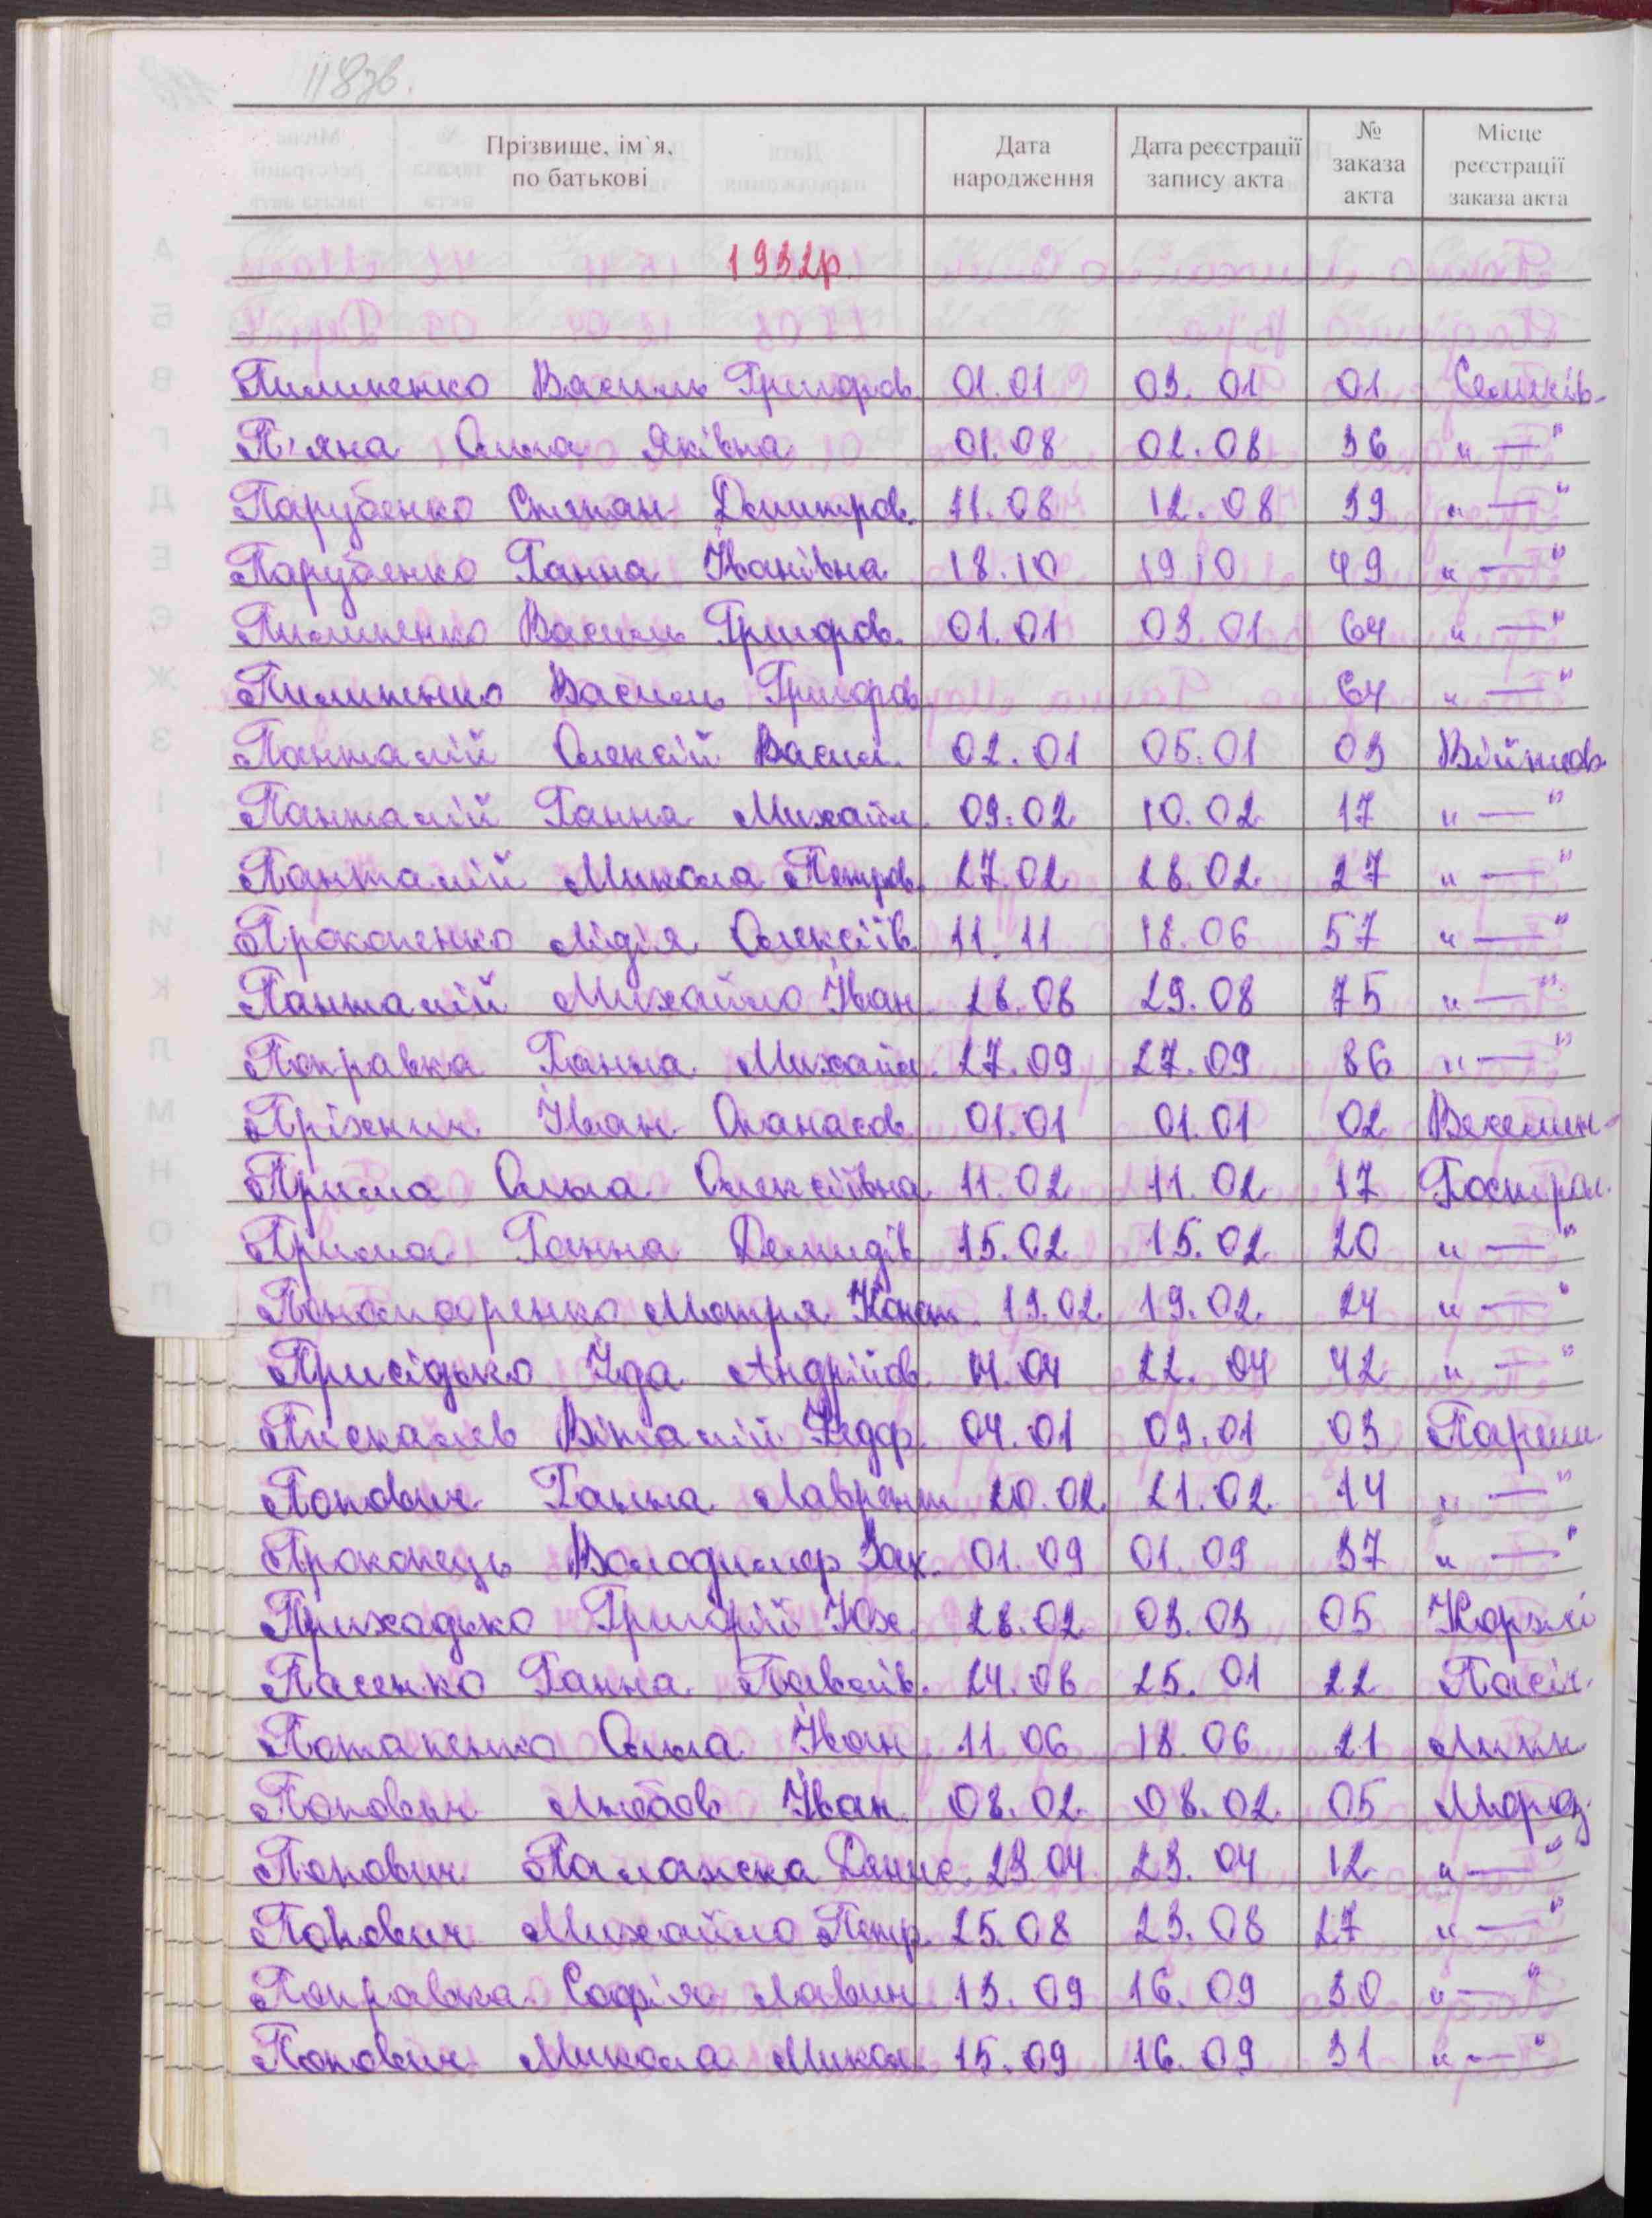 118зв.
Прізвище, ім`я, по батькові | Дата народження | Дата реєстрації запису акта | № заказа акта | Місце реєстрації заказа акта
1932р.
Пилипенко Василь Григоров. 01.01 03.01 01 Семиків-
П'яна Ольга Яківна 01.08 02.08 36 " — "
Парубенко Степан Дмитров. 11.08 12.08 39 " — "
Парубенко Ганна Іванівна 18.10 19.10 49 " — "
Пилипенко Василь Григоров. 01.01 03.01 64 " — "
Пилипенко Василь Григоров 64 " — "
Панталій Олексій Васил. 02.01 05.01 03 Війтов.
Панталій Ганна Михайл. 09.02 10.02 17 " — "
Панталій Микола Петров. 27.02 28.02 27 " — "
Прокопенко Лідія Олексіїв. 11.11 18.06 57 " — "
Панталій Михайло Іван. 28.08 29.08 75 " — "
Поправка Ганна Михайл. 27.09 27.09 86 " — "
Пріхнич Іван Опанасов. 01.01 01.01 02
Прима Ольга Олексіївна 11.02 11.02 17
Прима Ганна Демидів. 15.02 15.02 20 " — "
Пономаренко Мотря Конст. 19.02 19.02 24 " — "
Присідько Іда Андріїов. 14.04 22.04 42 " — "
Пискалев Віталій Федор. 04.01 09.01 03
Попович Ганна Лаврент. 20.02 21.02 14 " — "
Прокопець Володимер Зах. 01.09 01.09 37 " — "
Приходько Григорій Юх. 28.02 03.03 05 Коржі
Пасенко Ганна Павлів. 24.06 25.01 22 Пасіч.
Потапенко Ольга Іван 11.06 18.06 21 Липн
Попович Любов Іван. 08.02 08.02 05 Мороз.
Попович Палажка Денис. 23.04 23.04 12 " — "
Попович Михайло Петр. 25.08 23.08 27 " — "
Поправка Софія Лавин 13.09 16.09 30 " — "
Попович Микола Микол. 15.09 16.09 31 " — "